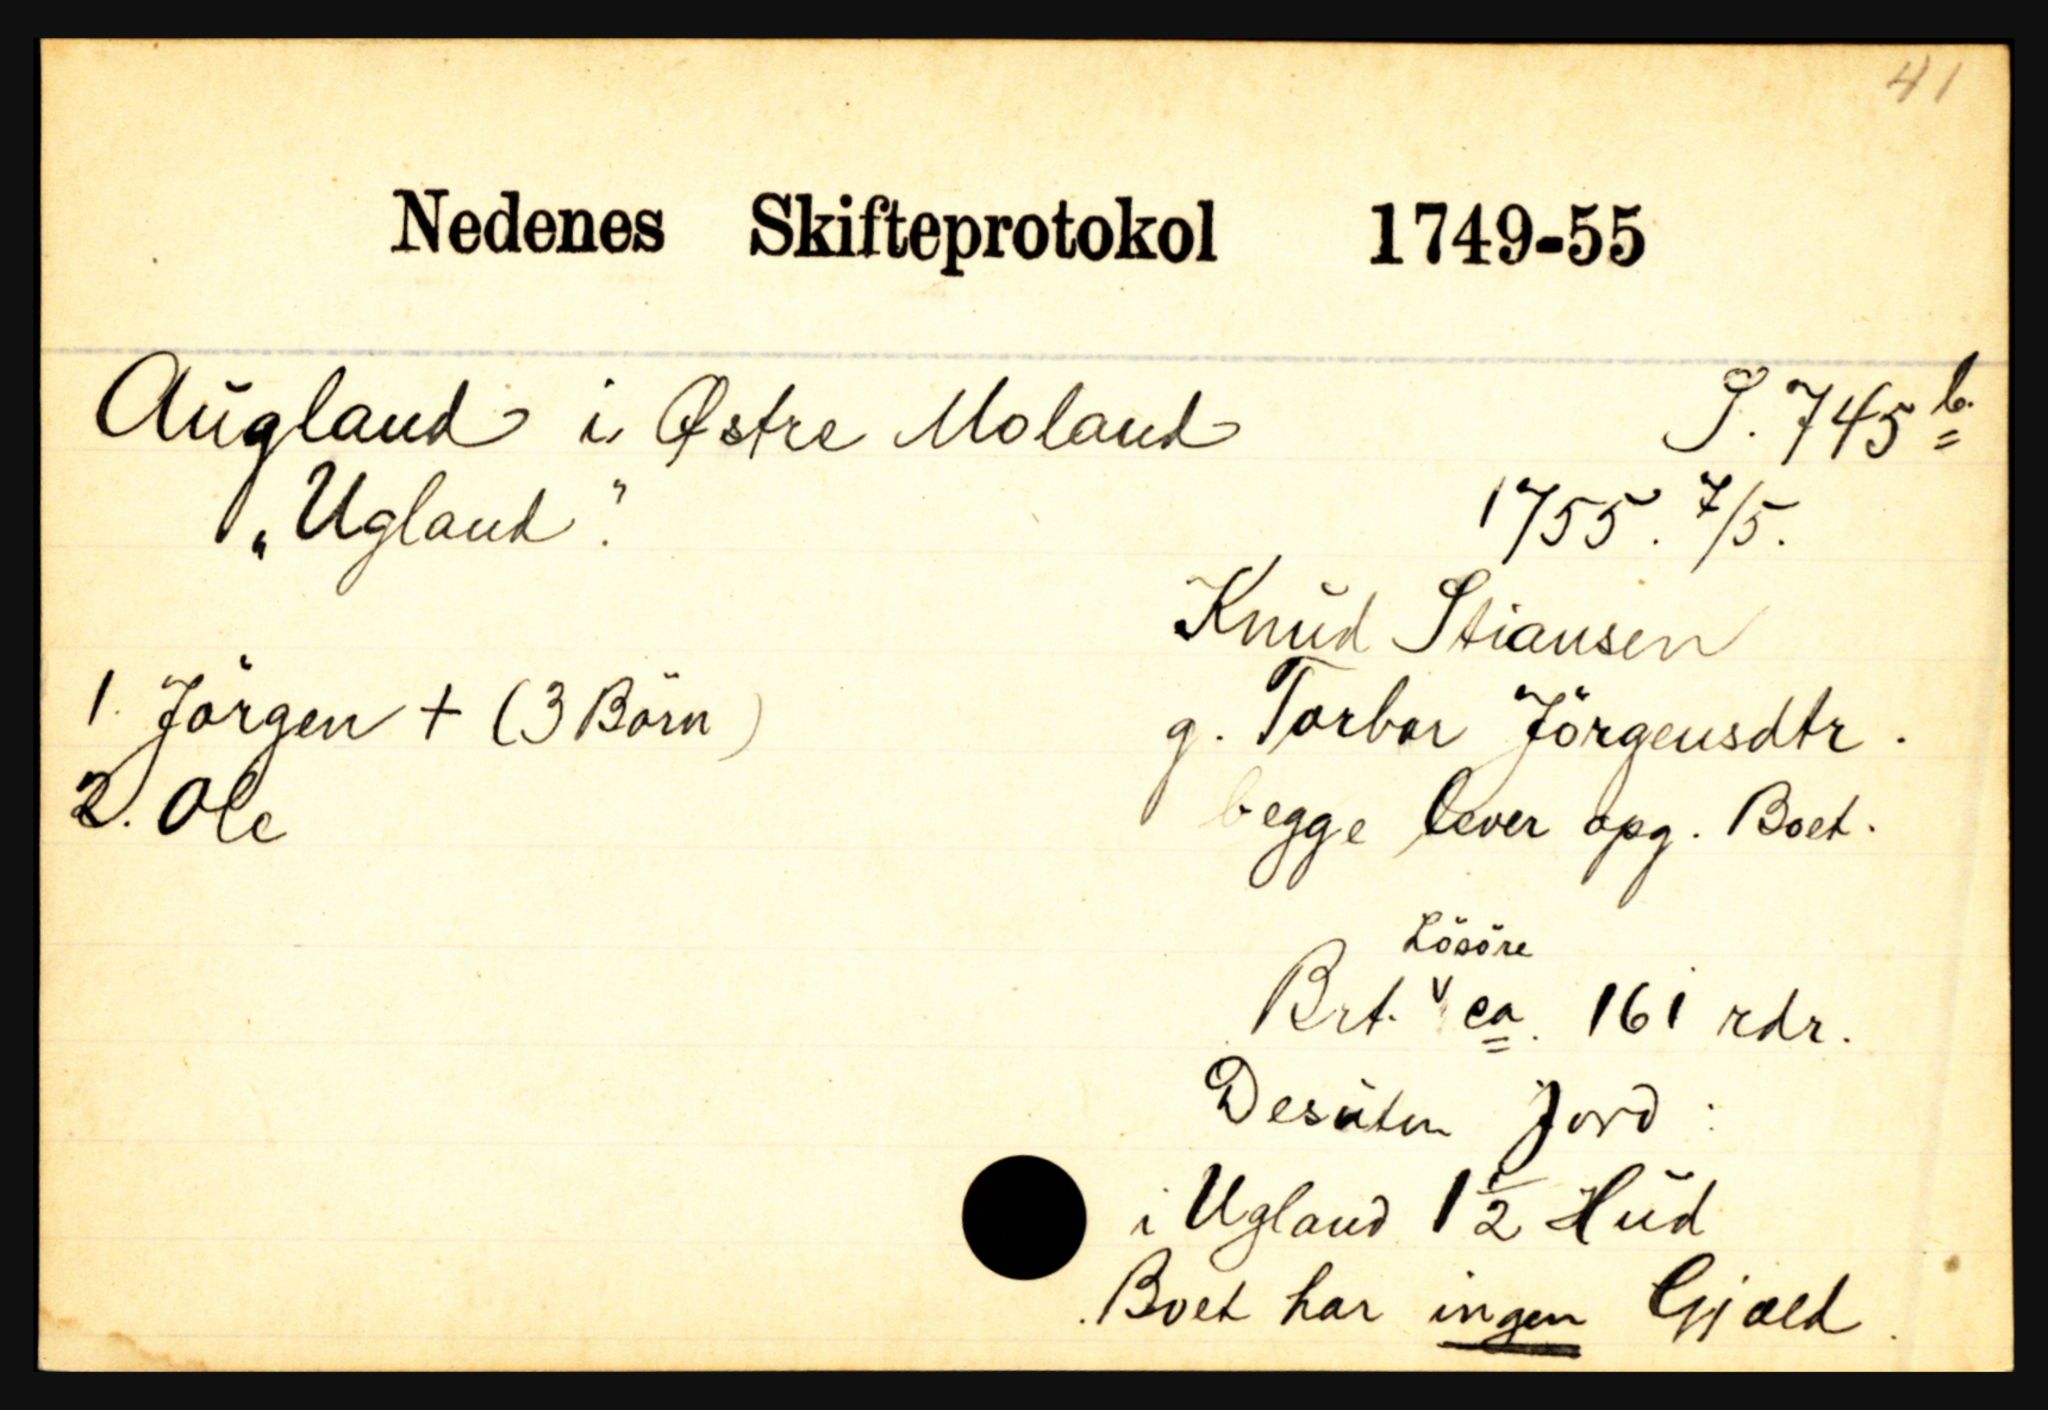 41
Nedenes Skifteprotokol 1749-55
Augland i Østre Moland S. 745 b.
"Ugland". 1755. 7/5.
Knud Stiansen
1. Jörgen + (3 Börn) g. Torbor Jörgensdtr.
2. Ole begge lever opg. Boet.
Lösöre
Brt. v ca. 161 rdr.
Desuten Jord:
i Ugland 1 1/2 Hud
Boet har ingen Gjæld.